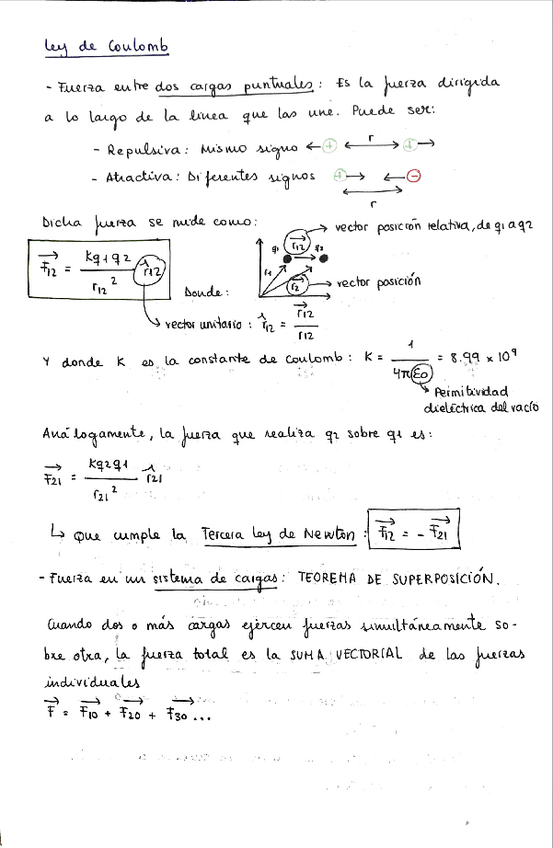 Ley de Coulomb
- Fuerza entre dos cargas puntuales: Es la fuerza dirigida
a lo largo de la línea que las une. Puede ser:
- Repulsiva: Mismo signo ←⊕ ⟷ ⊕→
r
- Atractiva: Diferentes signos ⊕→ ←⊖
r
Dicha fuerza se mide como:
vector posición relativa, de q1 a q2
F⃗12 = (Kq1q2 / r12²) r̂12
q1 r⃗12 q2
r1 r⃗2
vector posición
Donde:
vector unitario: r̂12 = r⃗12 / r12
Y donde K es la constante de Coulomb: K = 1 / 4π ε0 = 8.99 × 10⁹
Permitividad
dieléctrica del vacío
Análogamente, la fuerza que realiza q2 sobre q1 es:
F⃗21 = (Kq2q1 / r21²) r̂21
↳ Que cumple la Tercera Ley de Newton: F⃗12 = - F⃗21
- Fuerza en un sistema de cargas: TEOREMA DE SUPERPOSICIÓN.
Cuando dos o más cargas ejercen fuerzas simultáneamente so-
bre otra, la fuerza total es la SUMA VECTORIAL de las fuerzas
individuales
F⃗ = F⃗10 + F⃗20 + F⃗30 ...